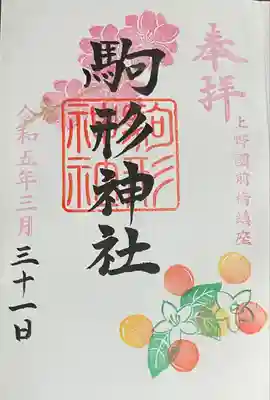 奉拝
上野國前橋鎮座
駒形神社
駒形神社
令和五年三月
三十一日